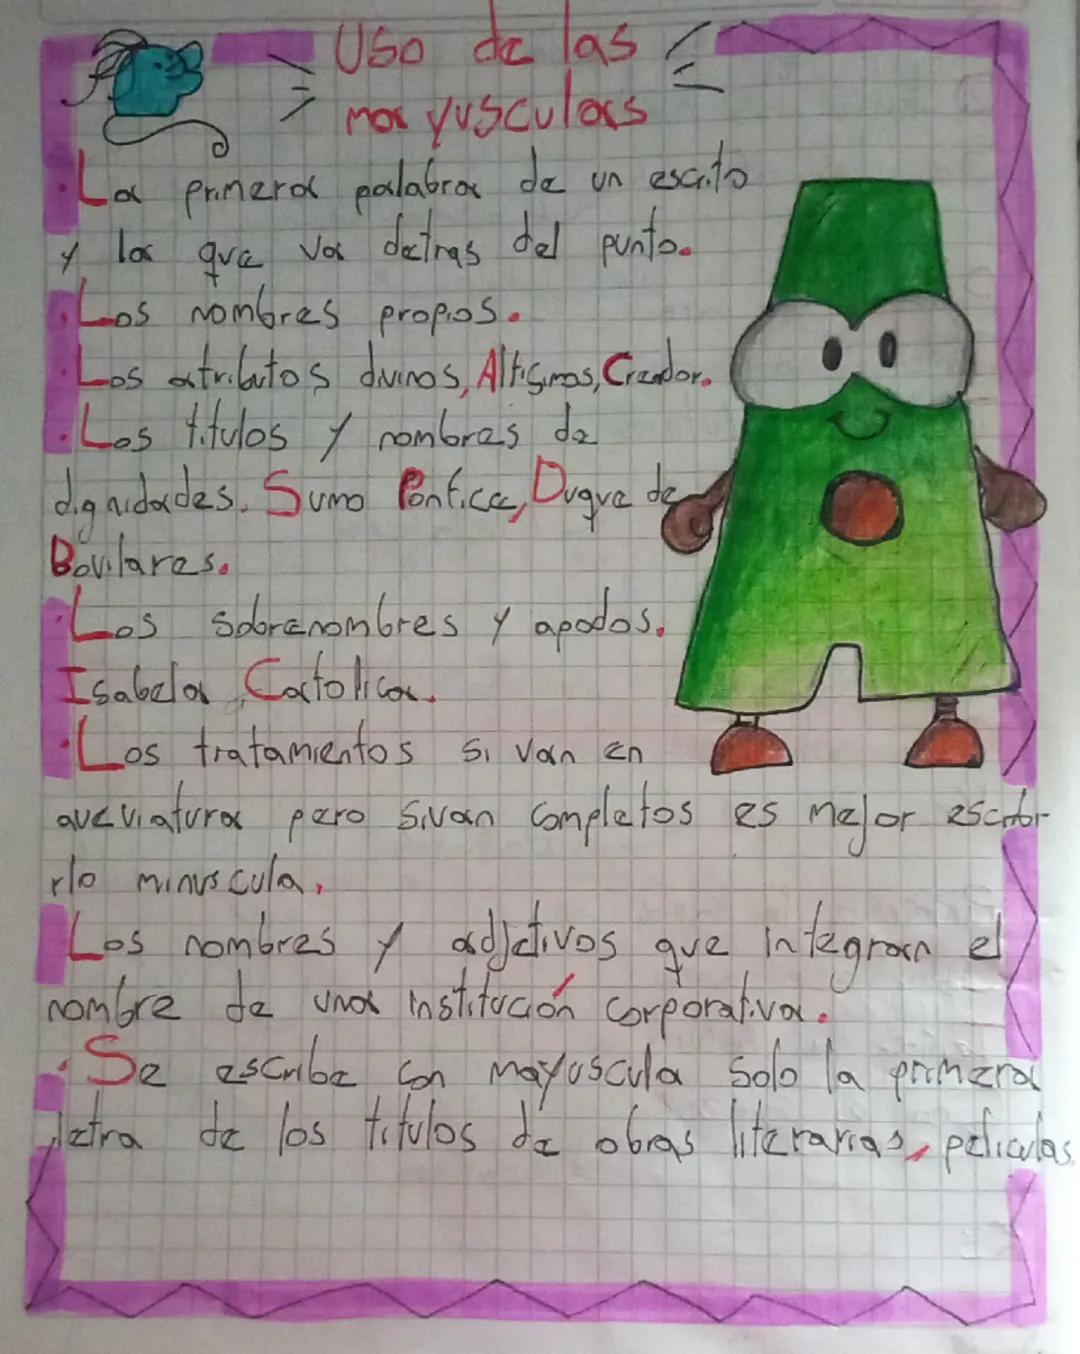 Uso de las
mayusculas
· La primera palabra de un escrito
y la que va detras del punto.
· Los nombres propios.
· Los atributos divinos, Altisimos, Creador.
· Los titulos y nombres de
dignidades. Sumo Pontice, Duque de
Bovilares.
· Los sobrenombres y apodos.
Isabela Catolica.
· Los tratamientos si van en
aveviatura pero sivan completos es mejor escribir
rlo minuscula,
Los nombres y adjetivos que integran el
nombre de una institución corporativa.
· Se escribe con mayuscula solo la primera
letra de los titulos de obras literarias, peliculas